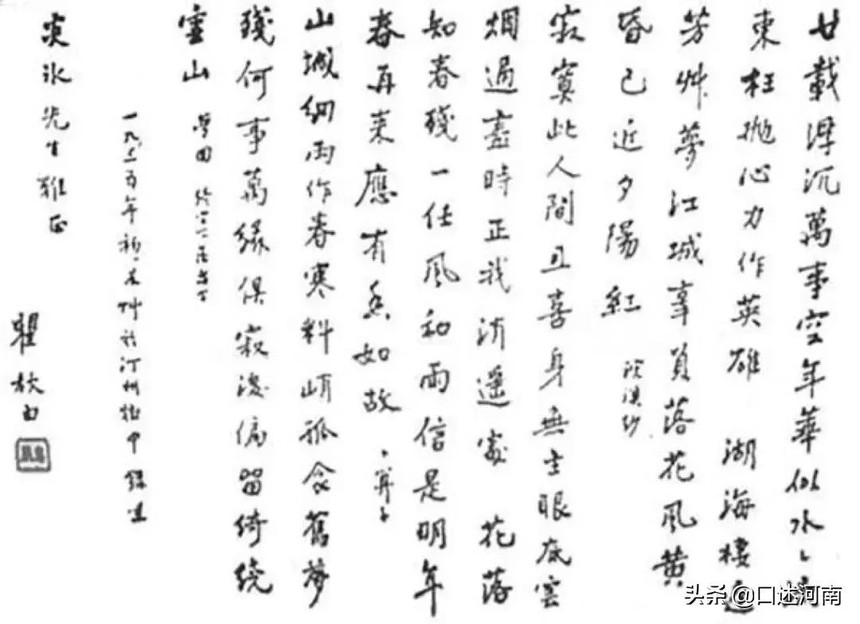 廿載浮沉萬事空年華似水水流
東枉抛心力作英雄 湖海棲遲
芳艸夢江城辜負落花風黄
昏已近夕陽紅 浣溪紗
寂寞此人間且喜身無主眼底雲
烟過盡時正我逍遥處 花落
知春殘一任風和雨信是明年
春再來應有香如故 卜算子
山城細雨作春寒料峭孤衾舊夢
殘何事萬緣俱寂後偏留綺繞
靈山 夢回
一九三五年初 艸於汀州獄中 録呈
炎冰先生雅正
瞿秋白
头条 @口述河南